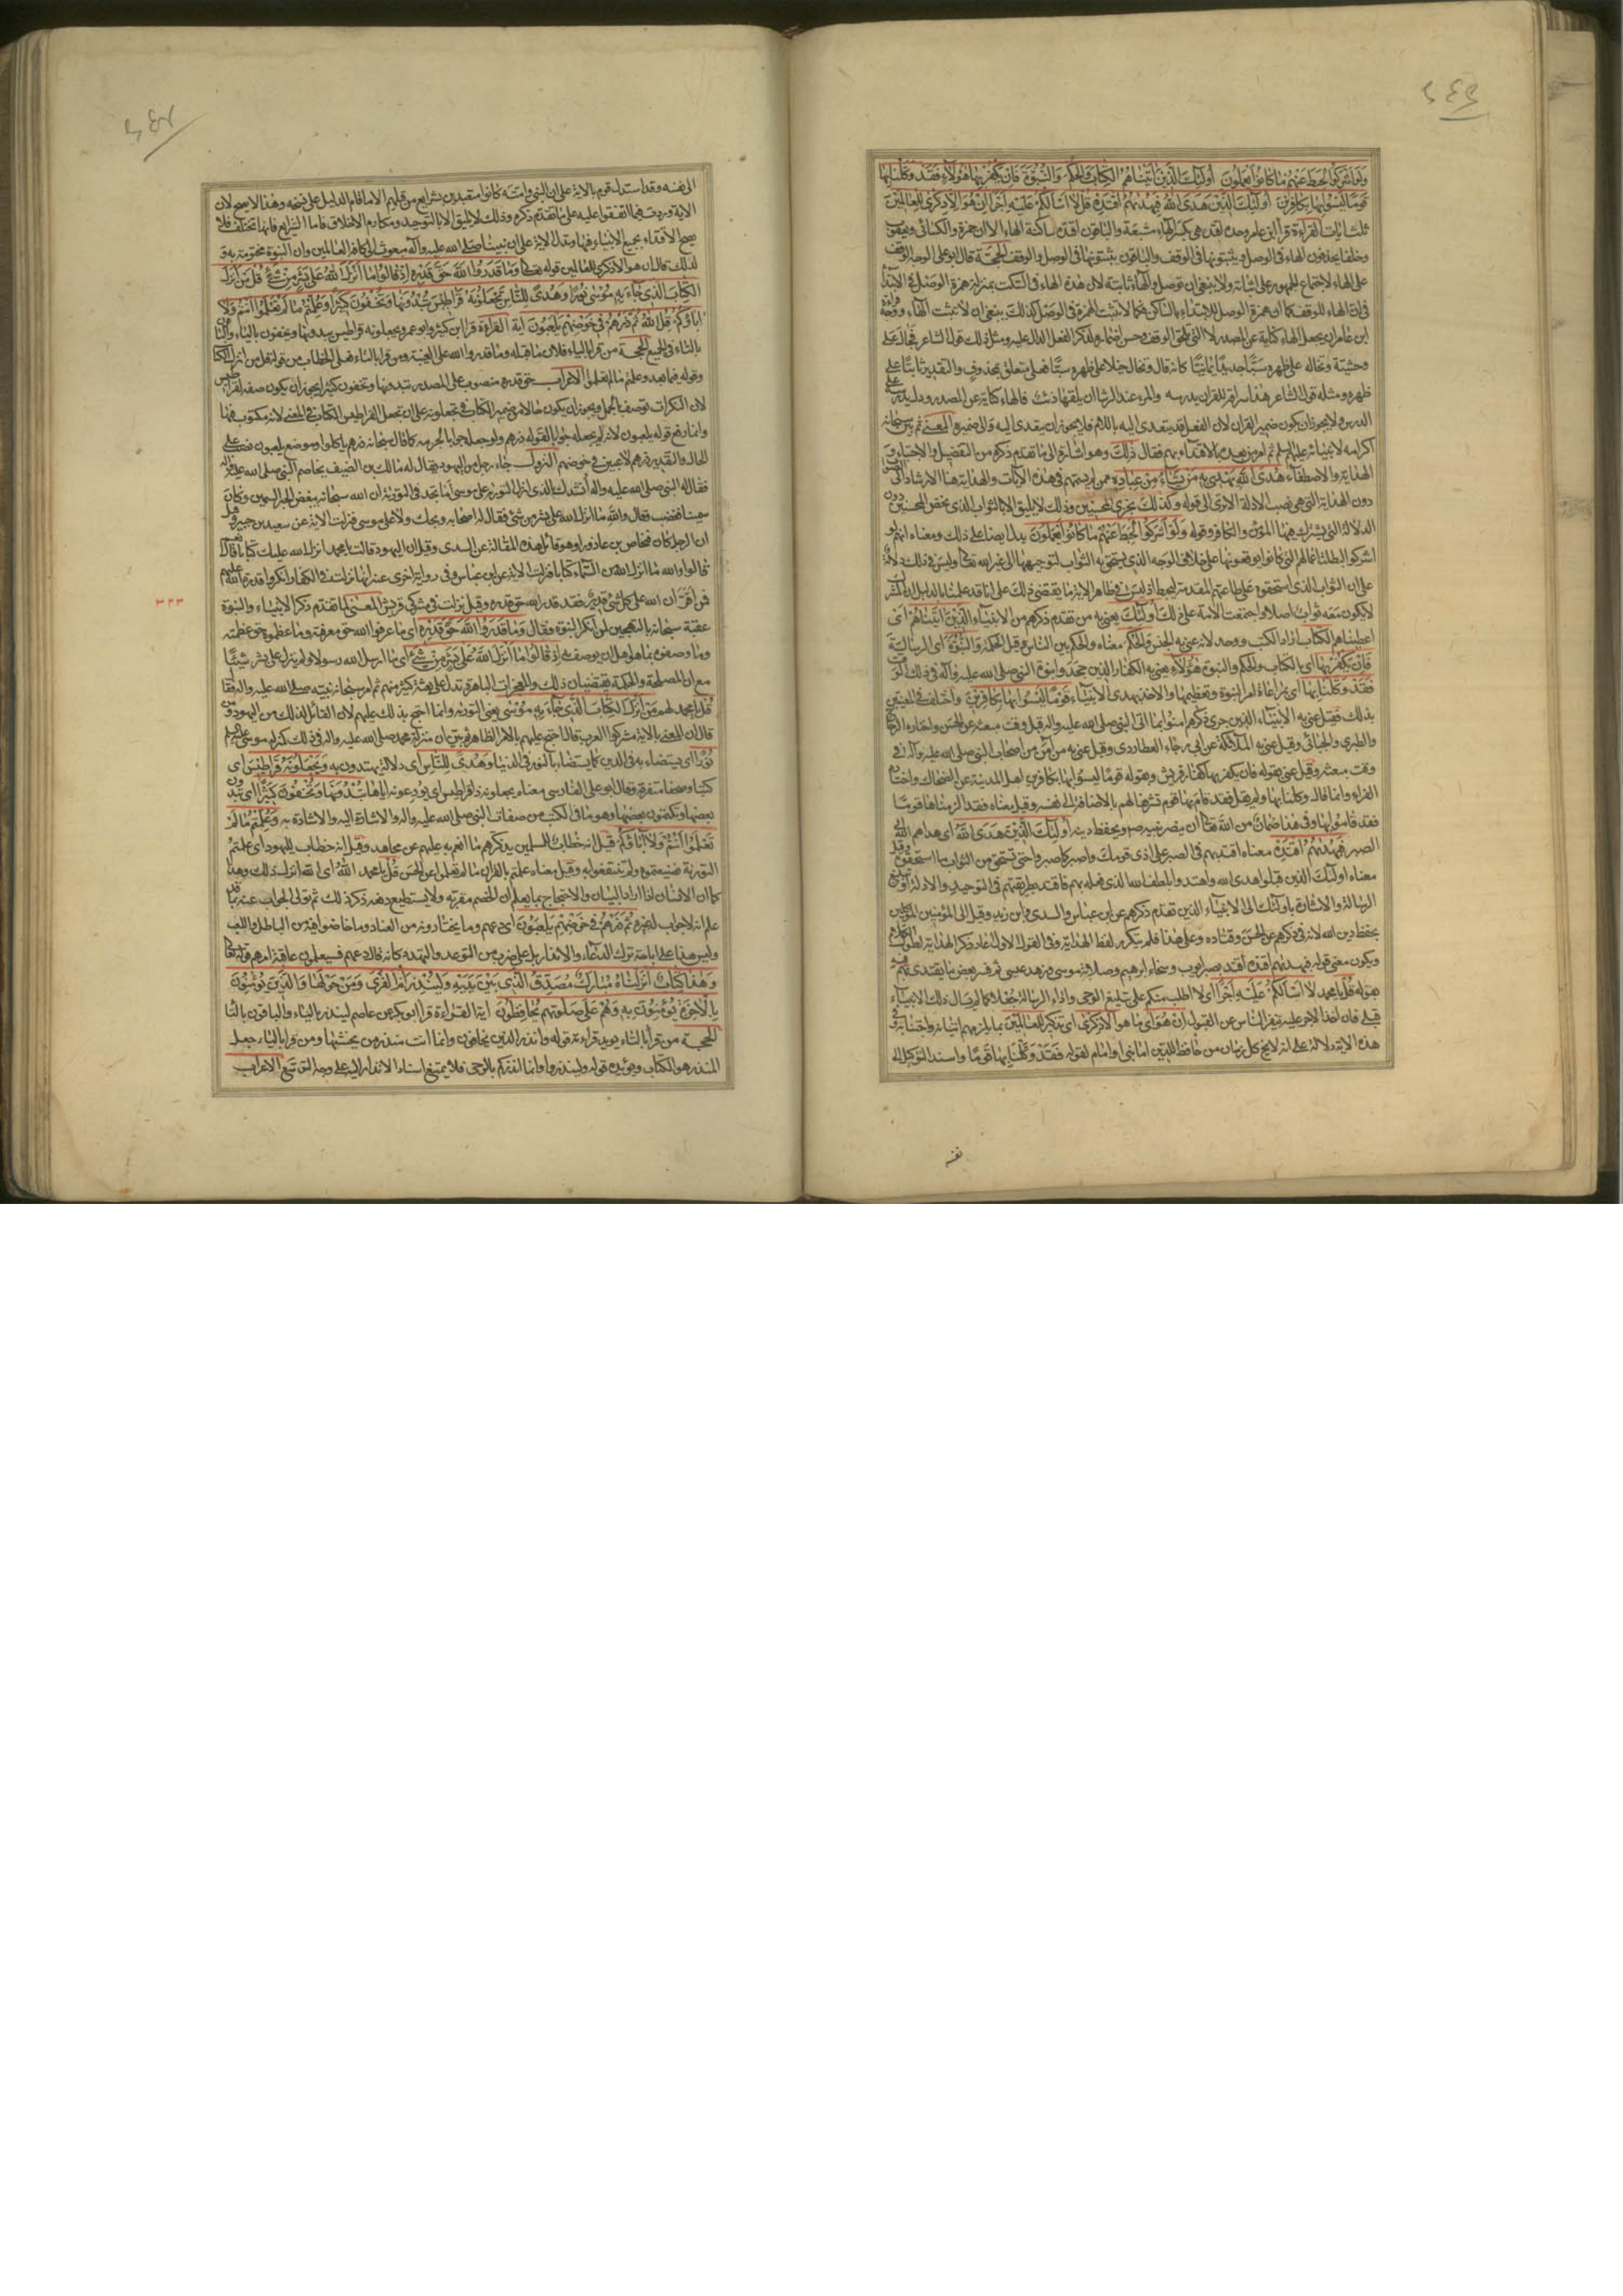 ولو اشركوا لحبط عنهم ما كانوا يعملون اولئك الذين اتيناهم الكتاب والحكم والنبوة فان يكفر بها هؤلاء فقد وكلنا بها
قوما ليسوا بها بكافرين اولئك الذين هدى الله فبهديهم اقتده قل لا اسالكم عليه اجرا ان هو الا ذكرى للعالمين
ثلث ايات القراءة قرا ابن عامر وحده اقتده بكسر الهاء مشبعة والباقون اقتده ساكنة الهاء الا ان حمزة والكسائي ويعقوب
وخلفا يحذفون الهاء في الوصل ويثبتونها في الوقف والباقون يثبتونها في الوصل والوقف الحجة قال ابو علي الوجه الوقف
على الهاء لاجتماع الجمهور على اثباته ولا ينبغي ان توصل والهاء ثابتة لان هذه الهاء في السكت بمنزلة همزة الوصل في الابتداء
في ان الهاء للوقف كما ان همزة الوصل للابتداء بالساكن فكما لا تثبت الهمزة في الوصل كذلك ينبغي ان لا تثبت الهاء ووجه قراءة
ابن عامر ان يجعل الهاء كناية عن المصدر لا التي تلحق الوقف وحسن اضماره لذكر الفعل الدال عليه ومثل ذلك قول الشاعر فجال على
وحشيه وتخاله على ظهره سبا جديدا يمانيا كانه قال وتخال خيلا على ظهره سبا فعلى متعلق بمحذوف والتقدير ثابتا على
ظهره ومثله قول الشاعر هذا سراقة للقران يدرسه والمرء عند الرشا ان يلقها ذئب فالهاء كناية عن المصدر ودل يدرسه على
الدرس ولا يجوز ان يكون ضمير القران لان الفعل قد يتعدى اليه باللام فلا يجوز ان يتعدى اليه والى ضميره المعنى ثم بين سبحانه
اكرامه لانبيائه عليهم السلم ثم امر من بعده بالاقتداء بهم فقال ذلك وهو اشارة الى ما تقدم ذكره من التفضيل والاجتباء و
الهداية والاصطفاء هدى الله يهدي به من يشاء من عباده ممن لم يسمهم في هذه الايات والهداية هنا الارشاد الى الثواب
دون الهداية التي هي نصب الادلة الا ترى الى قوله وكذلك نجزي المحسنين وذلك لا يليق الا بالثواب الذي يختص المحسنين دون
الدلالة التي يشترك فيها المؤمن والكافر وقوله ولو اشركوا لحبط عنهم ما كانوا يعملون يدل ايضا على ذلك ومعناه انهم لو
اشركوا لبطلت اعمالهم التي كانوا يوقعونها على خلاف الوجه الذي يستحق به الثواب لتوجيهها الى غير الله تعالى وليس في ذلك دلالة
على ان الثواب الذي استحقوه على طاعتهم المتقدمة يحبط اذ ليس في ظاهر الاية ما يقتضي ذلك على انا قد علمنا بالدليل ان الكفر
لا يكون معه ثواب اصلا واجتمعت الامة على ذلك اولئك يعني به من تقدم ذكرهم من الانبياء الذين اتيناهم اي
اعطيناهم الكتاب اراد الكتب ووحد لانه عنى به الجنس والحكم معناه والحكم بين الناس وقيل الحكمة والنبوة اي الرسالة
فان يكفر بها اي بالكتاب والحكم والنبوة هؤلاء يعني به الكفار الذين جحدوا نبوة النبي صلى الله عليه واله في ذلك الوقت
فقد وكلنا بها اي بمراعاة امر النبوة وتعظيمها والاخذ بهدى الانبياء قوما ليسوا بها بكافرين واختلف في المعنيين
بذلك فقيل عنى به الانبياء الذين جرى ذكرهم امنوا بما اتى النبي صلى الله عليه واله قبل وقت مبعثه عن الحسن واختاره الزجاج
والطبري والجبائي وقيل عنى به الملائكة عن ابي رجاء العطاردي وقيل عنى به من امن من اصحاب النبي صلى الله عليه واله في
وقت مبعثه وقيل عنى بقوله فان يكفر بها كفار قريش وبقوله قوما ليسوا بها بكافرين اهل المدينة عن الضحاك واختاره
الفراء وانما قال وكلنا بها ولم يقل فقد قام بها قوم تشريفا لهم بالاضافة الى نفسه وقيل معناه فقد الزمناها قوما
فقد قاموا بها وفي هذا ضمان من الله تعالى ان ينصر نبيه ص ويحفظ دينه اولئك الذين هدى الله اي هداهم الله الى
الصبر فبهديهم اقتده معناه اقتد بهم في الصبر على اذى قومك واصبر كما صبروا حتى تستحق من الثواب ما استحقوه وقيل
معناه اولئك الذين قبلوا هدى الله واهتدوا بلطف الله الذي فعله بهم فاقتد بطريقتهم في التوحيد والادلة وتبليغ
الرسالة والاشارة باولئك الى الانبياء الذين تقدم ذكرهم عن ابن عباس والسدي وابن زيد وقيل الى المؤمنين الموكلين
بحفظ دين الله لانه في ذكرهم عن الحسن وقتاده وعلى هذا فلم يتكرر لفظ الهداية وفي القول الاول اعاد ذكر الهداية لطول الكلام
ويكون معنى قوله فبهديهم اقتده اقتد بصبر ايوب وسخاء ابراهيم وصلابة موسى وزهد عيسى ثم فسر بعض ما يقتدى بهم فيه
بقوله قل يا محمد لا اسالكم عليه اجرا اي لا اطلب منكم على تبليغ الوحي واداء الرسالة جعلا كما لم يسال ذلك الانبياء
قبلي فان اخذ الاجر عليه ينفر الناس عن القبول ان هو اي ما هو الا ذكرى اي تذكير للعالمين بما يلزمهم اتيانه واجتنابه وفي
هذه الاية دلالة على انه لا يخلو كل زمان من حافظ للدين اما نبي او امام لقوله فقد وكلنا بها قوما واسند التوكيل الى
نفسه
الى نفسه وقد استدل قوم بالاية على ان النبي وامته كانوا متعبدين بشرائع من قبلهم الا ما قام الدليل على نسخه وهذا لا يصح لان
الاية وردت فيما اتفقوا عليه على ما تقدم ذكره وذلك لا يليق الا بالتوحيد ومكارم الاخلاق فاما الشرايع فانها تختلف فلا
يصح الاقتداء بجميع الانبياء فيها وتدل الاية على ان نبينا صلى الله عليه واله مبعوث الى كافة العالمين وان النبوة مختومة به و
لذلك قال ان هو الا ذكرى للعالمين قوله تعالى وما قدروا الله حق قدره اذ قالوا ما انزل الله على بشر من شئ قل من انزل
الكتاب الذي جاء به موسى نورا وهدى للناس تجعلونه قراطيس تبدونها وتخفون كثيرا وعلمتم ما لم تعلموا انتم ولا
اباؤكم قل الله ثم ذرهم في خوضهم يلعبون اية القراءة قرا ابن كثير وابو عمرو يجعلونه قراطيس يبدونها ويخفون بالياء والباقون
بالتاء في الجميع الحجة من قرا بالياء فلان ما قبله وما قدروا الله على الغيبة ومن قرا بالتاء فعلى الخطاب من قوله قل من انزل الكتاب
وقوله فيما بعد وعلمتم ما لم تعلموا الاعراب حق قدره منصوب على المصدر تبدونها وتخفون كثيرا يجوز ان يكون صفة لقراطيس
لان النكرات توصف بالجمل ويجوز ان يكون حالا من ضمير الكتاب في تجعلونه على ان تجعل القراطيس الكتاب في المعنى لانه مكتوب فيها
وانما رفع قوله يلعبون لانه لم يجعله جوابا لقوله ذرهم ولو جعله جوابا لجزمه كما قال سبحانه ذرهم ياكلوا وموضع يلعبون نصب على
الحال والتقدير ذرهم لاعبين في خوضهم النزول جاء رجل من اليهود يقال له مالك بن الضيف يخاصم النبي صلى الله عليه واله
فقال له النبي صلى الله عليه واله انشدك بالذي انزل التورية على موسى اما تجد في التورية ان الله سبحانه يبغض الحبر السمين وكان
سمينا فغضب فقال والله ما انزل الله على بشر من شئ فقال له اصحابه ويحك ولا على موسى فنزلت الاية عن سعيد بن جبير وقيل
ان الرجل كان فنحاص بن عازورا وهو قائل هذه المقالة عن السدي وقيل ان اليهود قالت يا محمد انزل الله عليك كتابا قال نعم
قالوا والله ما انزل الله من السماء كتابا فنزلت الاية عن ابن عباس وفي رواية اخرى عنه انها نزلت في الكفار انكروا قدرة الله عليهم
فمن اقر ان الله على كل شئ قدير فقد قدر الله حق قدره وقيل نزلت في مشركي قريش المعنى لما تقدم ذكر الانبياء والنبوة
عقبه سبحانه بالتهجين لمن انكر النبوة فقال وما قدروا الله حق قدره اي ما عرفوا الله حق معرفته وما عظموه حق عظمته
وما وصفوه بما هو اهل ان يوصف به اذ قالوا ما انزل الله على بشر من شئ اي ما ارسل الله رسولا ولم ينزل على بشر شيئا
مع ان المصلحة والحكمة يقتضيان ذلك والمعجزات الباهرة تدل على بعثة كثير منهم ثم امر سبحانه نبيه صلى الله عليه واله فقال
قل يا محمد لهم من انزل الكتاب الذي جاء به موسى يعني التورية وانما احتج بذلك عليهم لان القائل لذلك من اليهود ومن
قال ان المعني بالاية مشركوا العرب قال احتج عليهم بالامر الظاهر ثم بين ان منزلة محمد صلى الله عليه واله في ذلك كمنزلة موسى عليه السلم
نورا اي يستضاء به في الدين كما يستضاء بالنور في الدنيا وهدى للناس اي دلالة يهتدون به وتجعلونه قراطيس اي
كتبا وصحفا متفرقة وقال ابو علي الفارسي معناه يجعلونه ذا قراطيس اي يودعونه اياها تبدونها وتخفون كثيرا اي تبدون
بعضها وتكتمون بعضها وهو ما في الكتب من صفات النبي صلى الله عليه واله والاشارة اليه والاشارة به وعلمتم ما لم
تعلموا انتم ولا اباؤكم قيل انه خطاب للمسلمين يذكرهم ما انعم به عليهم عن مجاهد وقيل انه خطاب لليهود اي علمتم
التورية فضيعتموه ولم تنتفعوا به وقيل معناه علمتم بالقران ما لم تعلموا عن الحسن قل يا محمد الله اي الله انزل ذلك وهذا
كما ان الانسان اذا اراد البيان والاحتجاج بما يعلم ان الخصم مقر به ولا يستطيع دفعه ذكر ذلك ثم تولى الجواب عنه بما قد
علم انه لا جواب له غيره ثم ذرهم في خوضهم يلعبون اي دعهم وما يختارونه من العناد وما خاضوا فيه من الباطل واللعب
وليس هذا على اباحة ترك الدعاء والانذار بل على ضرب من التوعد والتهدد كانه قال دعهم فسيعلمون عاقبة امرهم قوله تعالى
وهذا كتاب انزلناه مبارك مصدق الذي بين يديه ولتنذر ام القرى ومن حولها والذين يؤمنون
بالاخرة يؤمنون به وهم على صلوتهم يحافظون اية القراءة قرا ابو بكر عن عاصم لينذر بالياء والباقون بالتاء
الحجة من قرا بالتاء يؤيد قراءته قوله وانذر به الذين يخافون وانما انت منذر من يخشيها ومن قرا بالياء جعل
المنذر هو الكتاب ويؤيده قوله ولينذروا وانما انذركم بالوحي فلا يمتنع اسناد الانذار اليه على وجه التوسع الاعراب
٣٣٣